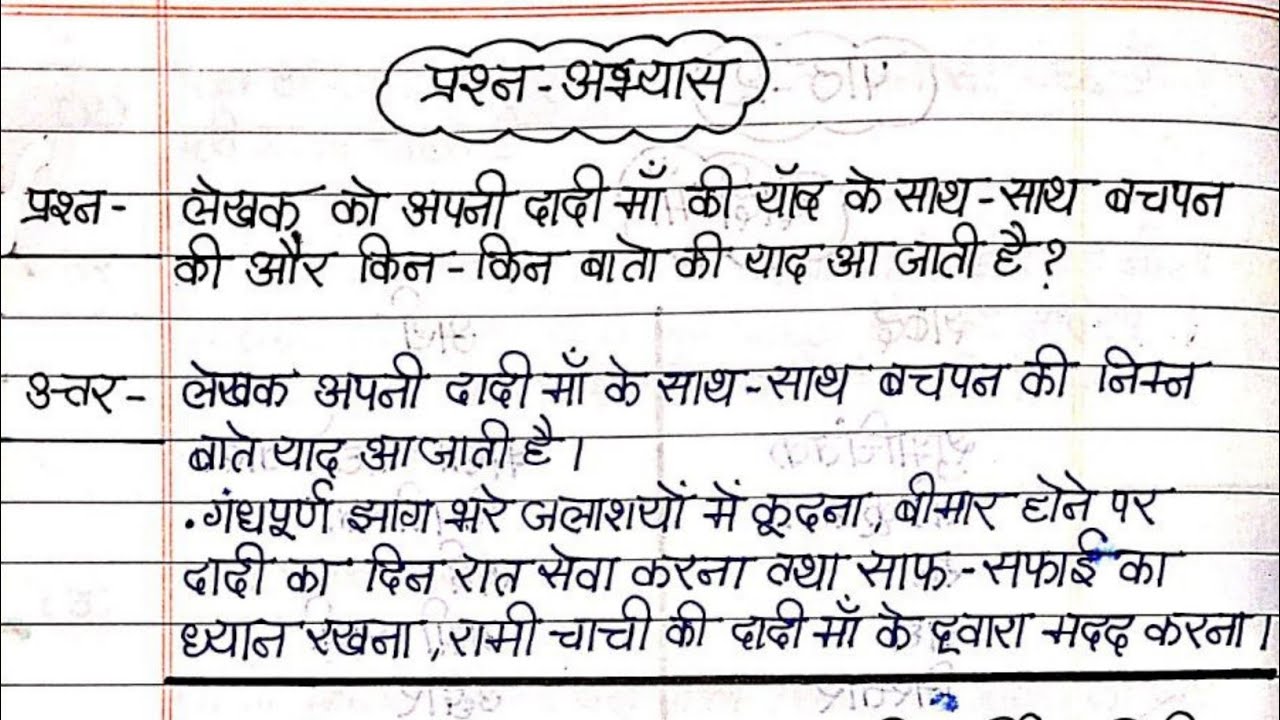 प्रश्न-अभ्यास
प्रश्न- लेखक को अपनी दादी माँ की यॉद के साथ-साथ बचपन
की और किन-किन बातो की याद आ जाती है?
उत्तर- लेखक अपनी दादी माँ के साथ-साथ बचपन की निम्न
बाते याद आ जाती है।
• गंधपूर्ण झाग भरे जलाशयों में कूदना, बीमार होने पर
दादी का दिन रात सेवा करना तथा साफ-सफाई का
ध्यान रखना, रामी चाची की दादी माँ के द्वारा मदद करना।